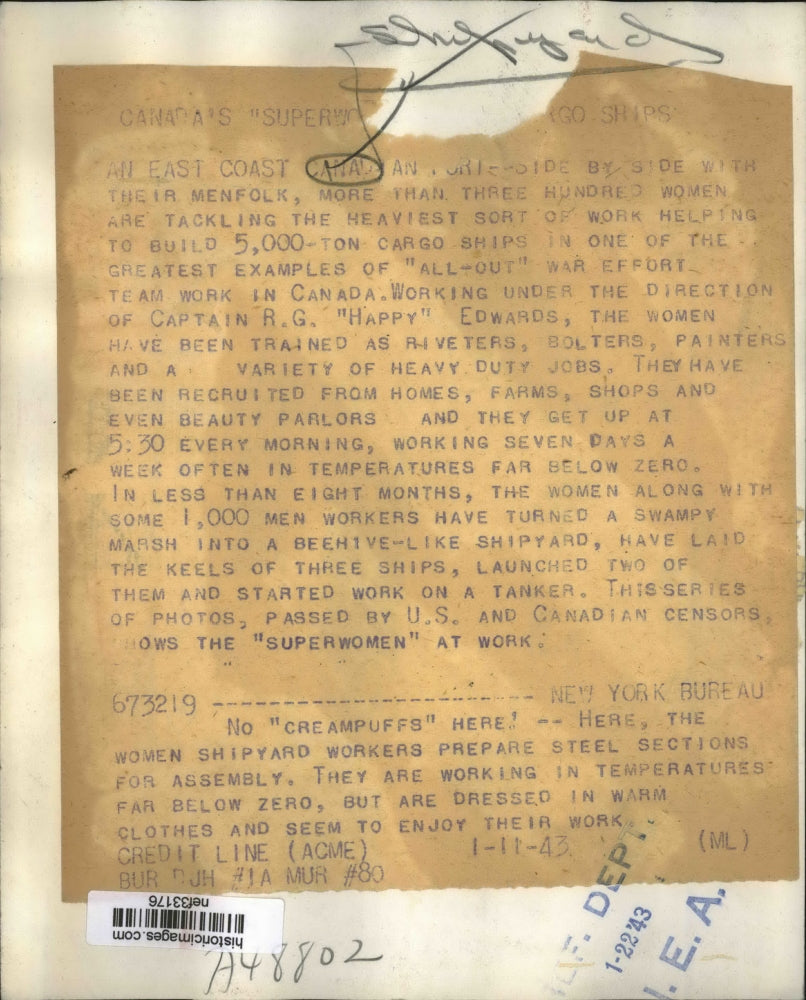 Shipyard
CANADA'S "SUPERWO GO SHIPS
AN EAST COAST CANADIAN PORT--SIDE BY SIDE WITH
THEIR MENFOLK, MORE THAN THREE HUNDRED WOMEN
ARE TACKLING THE HEAVIEST SORT OF WORK HELPING
TO BUILD 5,000-TON CARGO SHIPS IN ONE OF THE
GREATEST EXAMPLES OF "ALL-OUT" WAR EFFORT
TEAM WORK IN CANADA. WORKING UNDER THE DIRECTION
OF CAPTAIN R.G. "HAPPY" EDWARDS, THE WOMEN
HAVE BEEN TRAINED AS RIVETERS, BOLTERS, PAINTERS
AND A VARIETY OF HEAVY DUTY JOBS. THEY HAVE
BEEN RECRUITED FROM HOMES, FARMS, SHOPS AND
EVEN BEAUTY PARLORS AND THEY GET UP AT
5:30 EVERY MORNING, WORKING SEVEN DAYS A
WEEK OFTEN IN TEMPERATURES FAR BELOW ZERO.
IN LESS THAN EIGHT MONTHS, THE WOMEN ALONG WITH
SOME 1,000 MEN WORKERS HAVE TURNED A SWAMPY
MARSH INTO A BEEHIVE-LIKE SHIPYARD, HAVE LAID
THE KEELS OF THREE SHIPS, LAUNCHED TWO OF
THEM AND STARTED WORK ON A TANKER. THIS SERIES
OF PHOTOS, PASSED BY U.S. AND CANADIAN CENSORS,
HOWS THE "SUPERWOMEN" AT WORK.
673219 ----------------------- NEW YORK BUREAU
NO "CREAMPUFFS" HERE! -- HERE, THE
WOMEN SHIPYARD WORKERS PREPARE STEEL SECTIONS
FOR ASSEMBLY. THEY ARE WORKING IN TEMPERATURES
FAR BELOW ZERO, BUT ARE DRESSED IN WARM
CLOTHES AND SEEM TO ENJOY THEIR WORK.
CREDIT LINE (ACME) 1-11-43 (ML)
BUR JH #1A MUR #80
historicimages.com
nef33176
A48802
DEPT.
1-22'43
E.A.